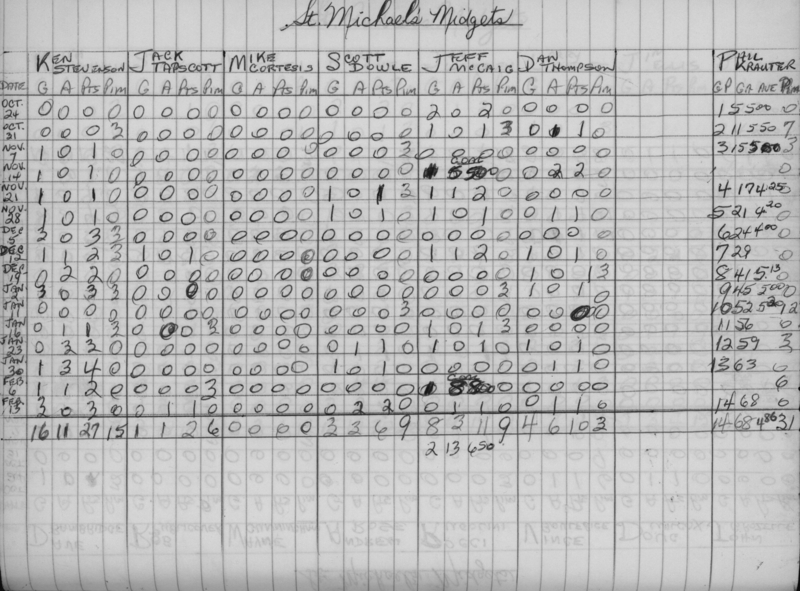 St. Michaels Midgets
KEN STEVENSON JACK TAPSCOTT MIKE CORTESIS SCOTT DOWLE JEFF McCAIG DAN THOMPSON PHIL KRAUTER
DATE G A Pts Pim G A Pts Pim G A Pts Pim G A Pts Pim G A Pts Pim G A Pts Pim GP GA AVE Pim
OCT. 24 0 0 0 0 0 0 0 0 0 0 0 0 0 0 0 0 2 0 2 0 0 0 0 0 1 5 5.00 0
OCT. 31 0 0 0 3 0 0 0 0 0 0 0 0 0 0 0 0 1 0 1 3 0 1 1 0 2 11 5.50 7
NOV. 7 1 0 1 0 0 0 0 0 0 0 0 0 0 0 0 3 0 0 0 0 0 0 0 0 3 15 5.00 3
NOV. 14 1 0 1 0 0 0 0 0 0 0 0 0 0 0 0 0 1 5 5.00 0 2 2 0 0
NOV. 21 1 0 1 0 0 0 0 0 0 0 0 0 1 0 1 3 1 1 2 0 0 0 0 0 4 17 4.25 0
NOV. 28 1 0 1 0 0 0 0 0 0 0 0 0 1 0 1 0 1 0 1 0 0 1 1 0 5 21 4.20 0
DEC 5 3 0 3 3 0 0 0 0 0 0 0 0 0 0 0 0 0 0 0 0 0 0 0 0 6 24 4.00 0
DEC 12 1 1 2 3 1 0 1 0 0 0 0 0 0 0 0 0 1 1 2 0 1 0 1 0 7 29 0
DEC 19 0 2 2 0 0 0 0 0 0 0 0 0 0 0 0 0 0 0 0 0 1 0 1 3 8 41 5.13 0
JAN 2 3 0 3 3 0 0 0 0 0 0 0 0 0 0 0 0 0 0 0 3 1 0 1 0 9 45 5.00 0
JAN 9 1 0 1 0 0 0 0 0 0 0 0 0 0 0 0 3 0 0 0 0 0 0 0 0 10 52 5.20 12
JAN 16 0 1 1 3 0 0 0 3 0 0 0 0 0 0 0 0 1 0 1 3 0 0 0 0 11 56 0
JAN 23 0 3 3 0 0 0 0 0 0 0 0 0 0 1 1 0 1 0 1 0 1 0 1 0 12 59 3
JAN 30 1 3 4 0 0 0 0 0 0 0 0 0 1 0 1 0 0 0 0 0 0 1 1 0 13 63 0
FEB 6 1 1 2 0 0 0 0 3 0 0 0 0 0 0 0 0 1 8 8.00 0 0 0 0 0 6
FEB. 13 3 0 3 0 0 1 1 0 0 0 0 0 0 2 2 0 0 1 1 0 0 1 1 0 14 68 0
16 11 27 15 1 1 2 6 0 0 0 0 3 3 6 9 8 3 11 9 4 6 10 3 14 68 4.86 31
2 13 6.50